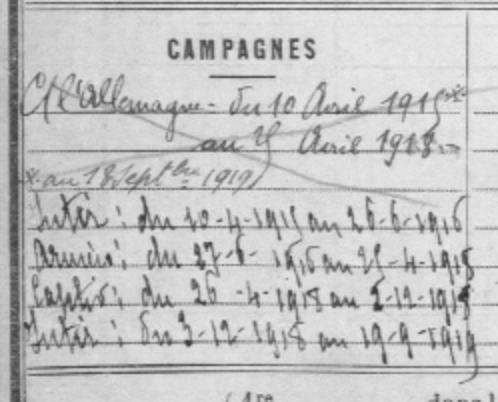 CAMPAGNES
C/ l'Allemagne - du 10 Avril 1915 *
au 25 Avril 1918
* au 18 Septbre 1919
Intér : du 10-4-1915 au 26-6-1916
Armées : du 27-6-1916 au 25-4-1918
Captiv : du 26-4-1918 au 2-12-1918
Intér : du 3-12-1918 au 19-9-1919